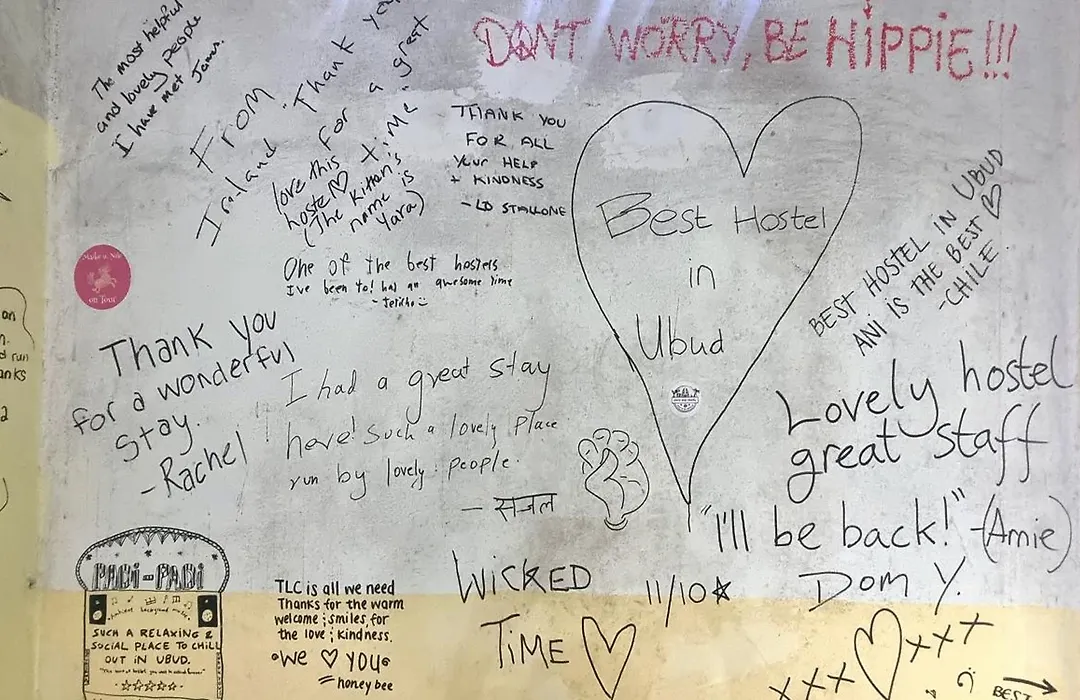 The most helpful
and lovely people
I have met Jams.
From
Ireland. Thank you
for a great
time.
love this
hostel♡
(The kitten's
name is
Yara)
THANK YOU
FOR ALL
YOUR HELP
+ KINDNESS
- LD STALLONE
DON'T WORRY, BE HiPPiE!!!
Best Hostel
in
Ubud
BEST HOSTEL IN UBUD
ANi IS THE BEST ♡
-CHILE
on Tour
One of the best hostels
I've been to! had an awesome time
- Jericho
Thank you
for a wonderful
stay.
-Rachel
I had a great stay
here! Such a lovely place
run by lovely people.
- सजल
Lovely hostel
great staff
"I'll be back!" -(Arnie)
Dom Y.
xxx
xxx
WICKED 11/10☆
TiME ♡
PADi-PADi
Ambient background music
SUCH A RELAXING &
SOCIAL PLACE TO CHILL
OUT IN UBUD.
☆☆☆☆☆
TLC is all we need
Thanks for the warm
welcome ; smiles, for
the love ; kindness.
•We ♡ you•
= honey bee
BEST
on
n.
d run
anks
a